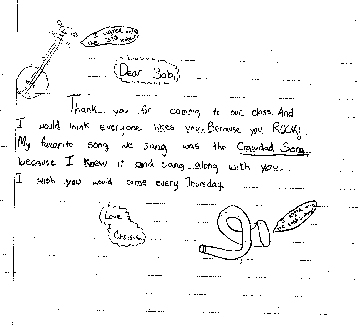 I agree with
Dear Bob,
Thank you for coming to our class. And
I would think everyone likes you. Because you ROCK!
My favorite song we sang was the Crawdad Song
because I knew it and sang along with you.
I wish you would come every Thursday
Love